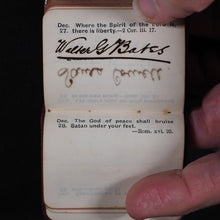 Dec. Where the Spirit of the Lord is,
27. there is liberty.—2 Cor. iii. 17.
Walter G Bates
Dec. The God of peace shall bruise
28. Satan under your feet.
—Rom. xvi. 20.